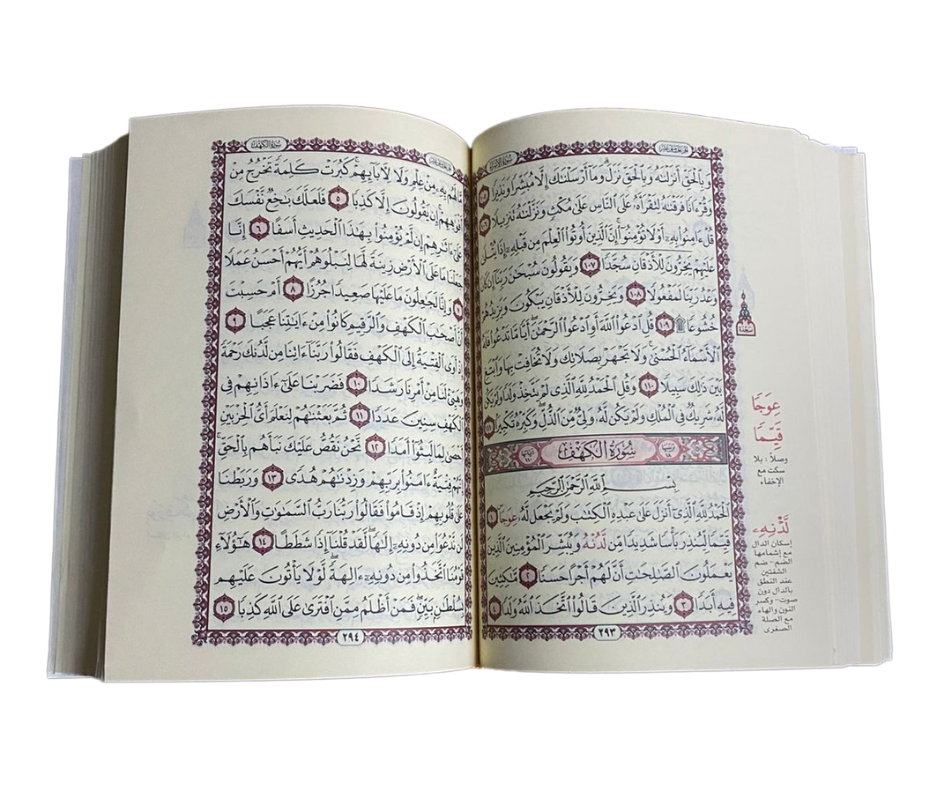 سُورَةُ الإِسْرَاءِ
وَبِالْحَقِّ أَنزَلْنَٰهُ وَبِالْحَقِّ نَزَلَ وَمَا أَرْسَلْنَٰكَ إِلَّا مُبَشِّرًا وَنَذِيرًا ١٠٥
وَقُرْءَانًا فَرَقْنَٰهُ لِتَقْرَأَهُ عَلَى النَّاسِ عَلَىٰ مُكْثٍ وَنَزَّلْنَٰهُ تَنزِيلًا ١٠٦
قُلْ ءَامِنُوا بِهِ أَوْ لَا تُؤْمِنُوا إِنَّ الَّذِينَ أُوتُوا الْعِلْمَ مِن قَبْلِهِ إِذَا يُتْلَىٰ
عَلَيْهِمْ يَخِرُّونَ لِلْأَذْقَانِ سُجَّدًا ١٠٧ وَيَقُولُونَ سُبْحَٰنَ رَبِّنَا إِن كَانَ
وَعْدُ رَبِّنَا لَمَفْعُولًا ١٠٨ وَيَخِرُّونَ لِلْأَذْقَانِ يَبْكُونَ وَيَزِيدُهُمْ
خُشُوعًا ۩ ١٠٩ قُلِ ادْعُوا اللَّهَ أَوِ ادْعُوا الرَّحْمَٰنَ أَيًّا مَّا تَدْعُوا فَلَهُ
الْأَسْمَاءُ الْحُسْنَىٰ وَلَا تَجْهَرْ بِصَلَاتِكَ وَلَا تُخَافِتْ بِهَا وَابْتَغِ
بَيْنَ ذَٰلِكَ سَبِيلًا ١١٠ وَقُلِ الْحَمْدُ لِلَّهِ الَّذِي لَمْ يَتَّخِذْ وَلَدًا وَلَمْ يَكُن
لَّهُ شَرِيكٌ فِي الْمُلْكِ وَلَمْ يَكُن لَّهُ وَلِيٌّ مِّنَ الذُّلِّ وَكَبِّرْهُ تَكْبِيرًا ١١١
سُورَةُ الْكَهْفِ
بِسْمِ اللَّهِ الرَّحْمَٰنِ الرَّحِيمِ
الْحَمْدُ لِلَّهِ الَّذِي أَنزَلَ عَلَىٰ عَبْدِهِ الْكِتَٰبَ وَلَمْ يَجْعَل لَّهُ عِوَجًا ١
قَيِّمًا لِّيُنذِرَ بَأْسًا شَدِيدًا مِّن لَّدْنِهِ وَيُبَشِّرَ الْمُؤْمِنِينَ الَّذِينَ
يَعْمَلُونَ الصَّٰلِحَٰتِ أَنَّ لَهُمْ أَجْرًا حَسَنًا ٢ مَّٰكِثِينَ
فِيهِ أَبَدًا ٣ وَيُنذِرَ الَّذِينَ قَالُوا اتَّخَذَ اللَّهُ وَلَدًا ٤
٢٩٣
سجدة
عِوَجَا
قَيِّمًا
وصلاً : بلا
سكت مع
الإخفاء
لَدْنِهِۦ
إسكان الدال
مع إشمامها
الضم - ضم
الشفتين
عند النطق
بالدال دون
صوت - وكسر
النون والهاء
مع الصلة
الصغرى
سُورَةُ الْكَهْفِ
بِهِ مِنْ عِلْمٍ وَلَا لِآبَائِهِمْ كَبُرَتْ كَلِمَةً تَخْرُجُ مِنْ
أَفْوَاهِهِمْ إِن يَقُولُونَ إِلَّا كَذِبًا ٥ فَلَعَلَّكَ بَٰخِعٌ نَّفْسَكَ
عَلَىٰ ءَاثَٰرِهِمْ إِن لَّمْ يُؤْمِنُوا بِهَٰذَا الْحَدِيثِ أَسَفًا ٦ إِنَّا
جَعَلْنَا مَا عَلَى الْأَرْضِ زِينَةً لَّهَا لِنَبْلُوَهُمْ أَيُّهُمْ أَحْسَنُ عَمَلًا
٧ وَإِنَّا لَجَٰعِلُونَ مَا عَلَيْهَا صَعِيدًا جُرُزًا ٨ أَمْ حَسِبْتَ
أَنَّ أَصْحَٰبَ الْكَهْفِ وَالرَّقِيمِ كَانُوا مِنْ ءَايَٰتِنَا عَجَبًا ٩
إِذْ أَوَى الْفِتْيَةُ إِلَى الْكَهْفِ فَقَالُوا رَبَّنَا ءَاتِنَا مِن لَّدُنكَ رَحْمَةً
وَهَيِّئْ لَنَا مِنْ أَمْرِنَا رَشَدًا ١٠ فَضَرَبْنَا عَلَىٰ ءَاذَانِهِمْ فِي
الْكَهْفِ سِنِينَ عَدَدًا ١١ ثُمَّ بَعَثْنَٰهُمْ لِنَعْلَمَ أَيُّ الْحِزْبَيْنِ
أَحْصَىٰ لِمَا لَبِثُوا أَمَدًا ١٢ نَّحْنُ نَقُصُّ عَلَيْكَ نَبَأَهُم بِالْحَقِّ
إِنَّهُمْ فِتْيَةٌ ءَامَنُوا بِرَبِّهِمْ وَزِدْنَٰهُمْ هُدًى ١٣ وَرَبَطْنَا
عَلَىٰ قُلُوبِهِمْ إِذْ قَامُوا فَقَالُوا رَبُّنَا رَبُّ السَّمَٰوَٰتِ وَالْأَرْضِ
لَن نَّدْعُوَا مِن دُونِهِ إِلَٰهًا لَّقَدْ قُلْنَا إِذًا شَطَطًا ١٤ هَٰؤُلَاءِ
قَوْمُنَا اتَّخَذُوا مِن دُونِهِ ءَالِهَةً لَّوْلَا يَأْتُونَ عَلَيْهِم
بِسُلْطَٰنٍ بَيِّنٍ فَمَنْ أَظْلَمُ مِمَّنِ افْتَرَىٰ عَلَى اللَّهِ كَذِبًا ١٥
٢٩٤